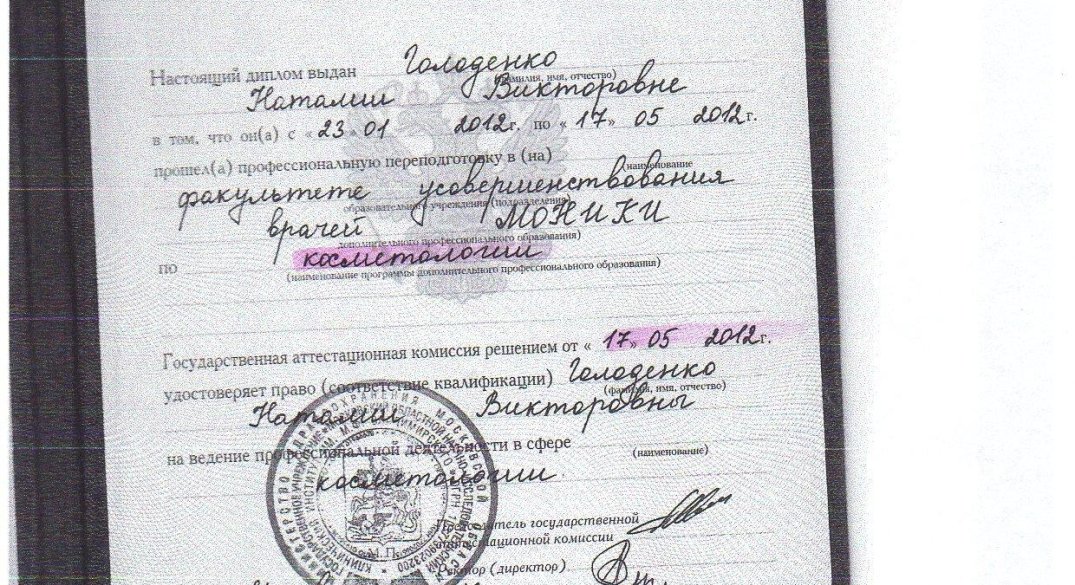 Настоящий диплом выдан Голоденко
(фамилия, имя, отчество)
Наталии Викторовне
в том, что он(а) с «23» 01 2012г. по «17» 05 2012г.
прошел(а) профессиональную переподготовку в (на)
(наименование
факультете усовершенствования
образовательного учреждения (подразделения)
врачей МОНИКИ
дополнительного профессионального образования)
по косметологии
(наименование программы дополнительного профессионального образования)
Государственная аттестационная комиссия решением от «17» 05 2012г.
удостоверяет право (соответствие квалификации) Голоденко
(фамилия, имя, отчество)
Наталии Викторовны
на ведение профессиональной деятельности в сфере
(наименование)
косметологии
Председатель государственной
аттестационной комиссии
Ректор (директор)